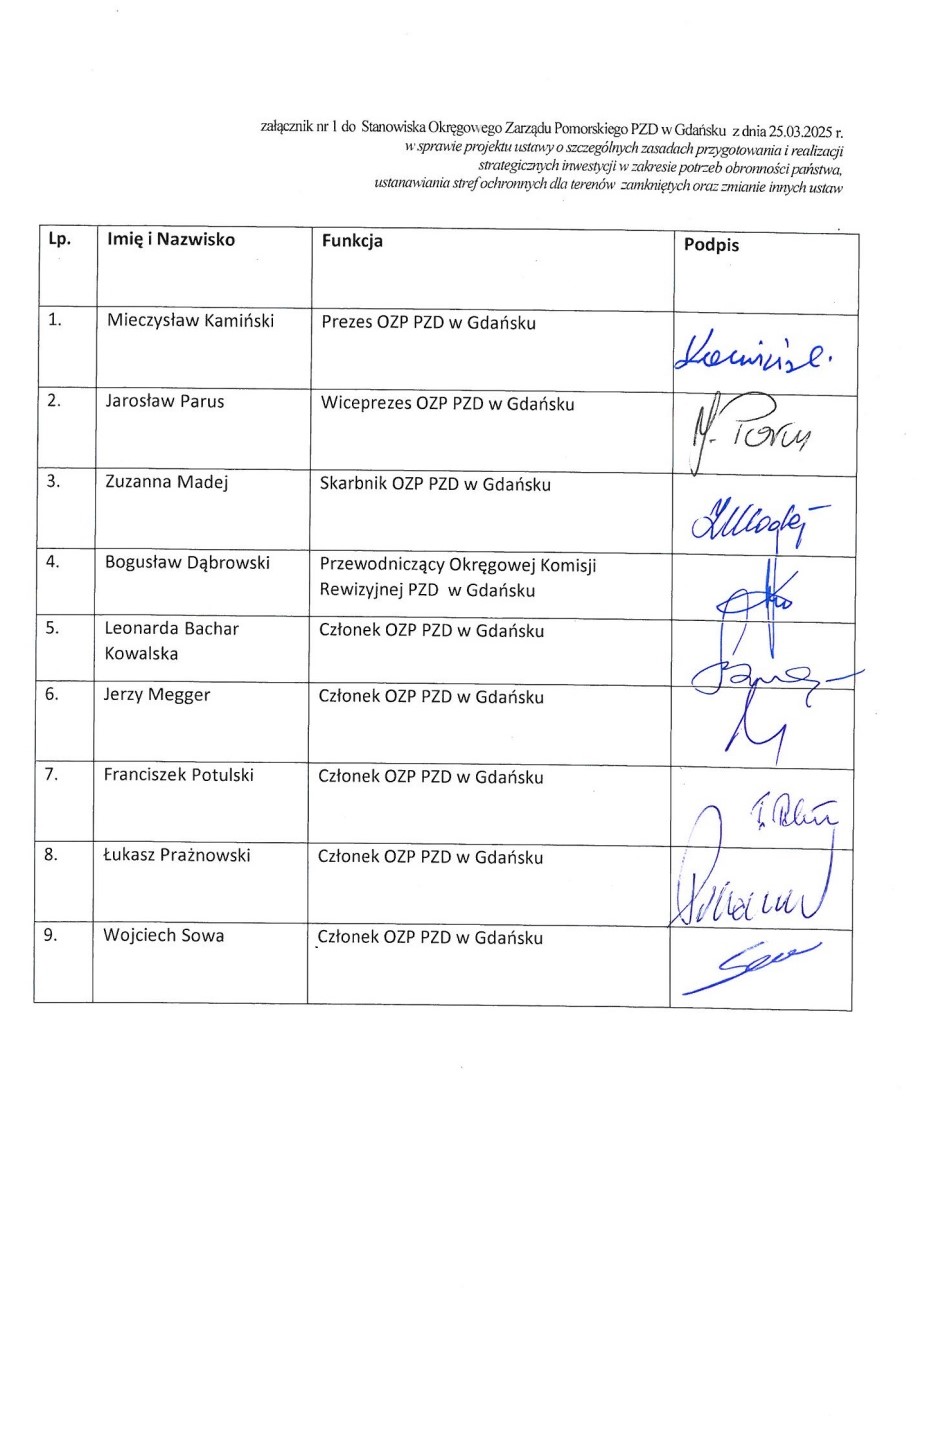 załącznik nr 1 do Stanowiska Okręgowego Zarządu Pomorskiego PZD w Gdańsku z dnia 25.03.2025 r.
w sprawie projektu ustawy o szczególnych zasadach przygotowania i realizacji
strategicznych inwestycji w zakresie potrzeb obronności państwa,
ustanawiania stref ochronnych dla terenów zamkniętych oraz zmianie innych ustaw
Lp. Imię i Nazwisko Funkcja Podpis
1. Mieczysław Kamiński Prezes OZP PZD w Gdańsku
2. Jarosław Parus Wiceprezes OZP PZD w Gdańsku
3. Zuzanna Madej Skarbnik OZP PZD w Gdańsku
4. Bogusław Dąbrowski Przewodniczący Okręgowej Komisji
Rewizyjnej PZD w Gdańsku
5. Leonarda Bachar Członek OZP PZD w Gdańsku
Kowalska
6. Jerzy Megger Członek OZP PZD w Gdańsku
7. Franciszek Potulski Członek OZP PZD w Gdańsku
8. Łukasz Prażnowski Członek OZP PZD w Gdańsku
9. Wojciech Sowa Członek OZP PZD w Gdańsku